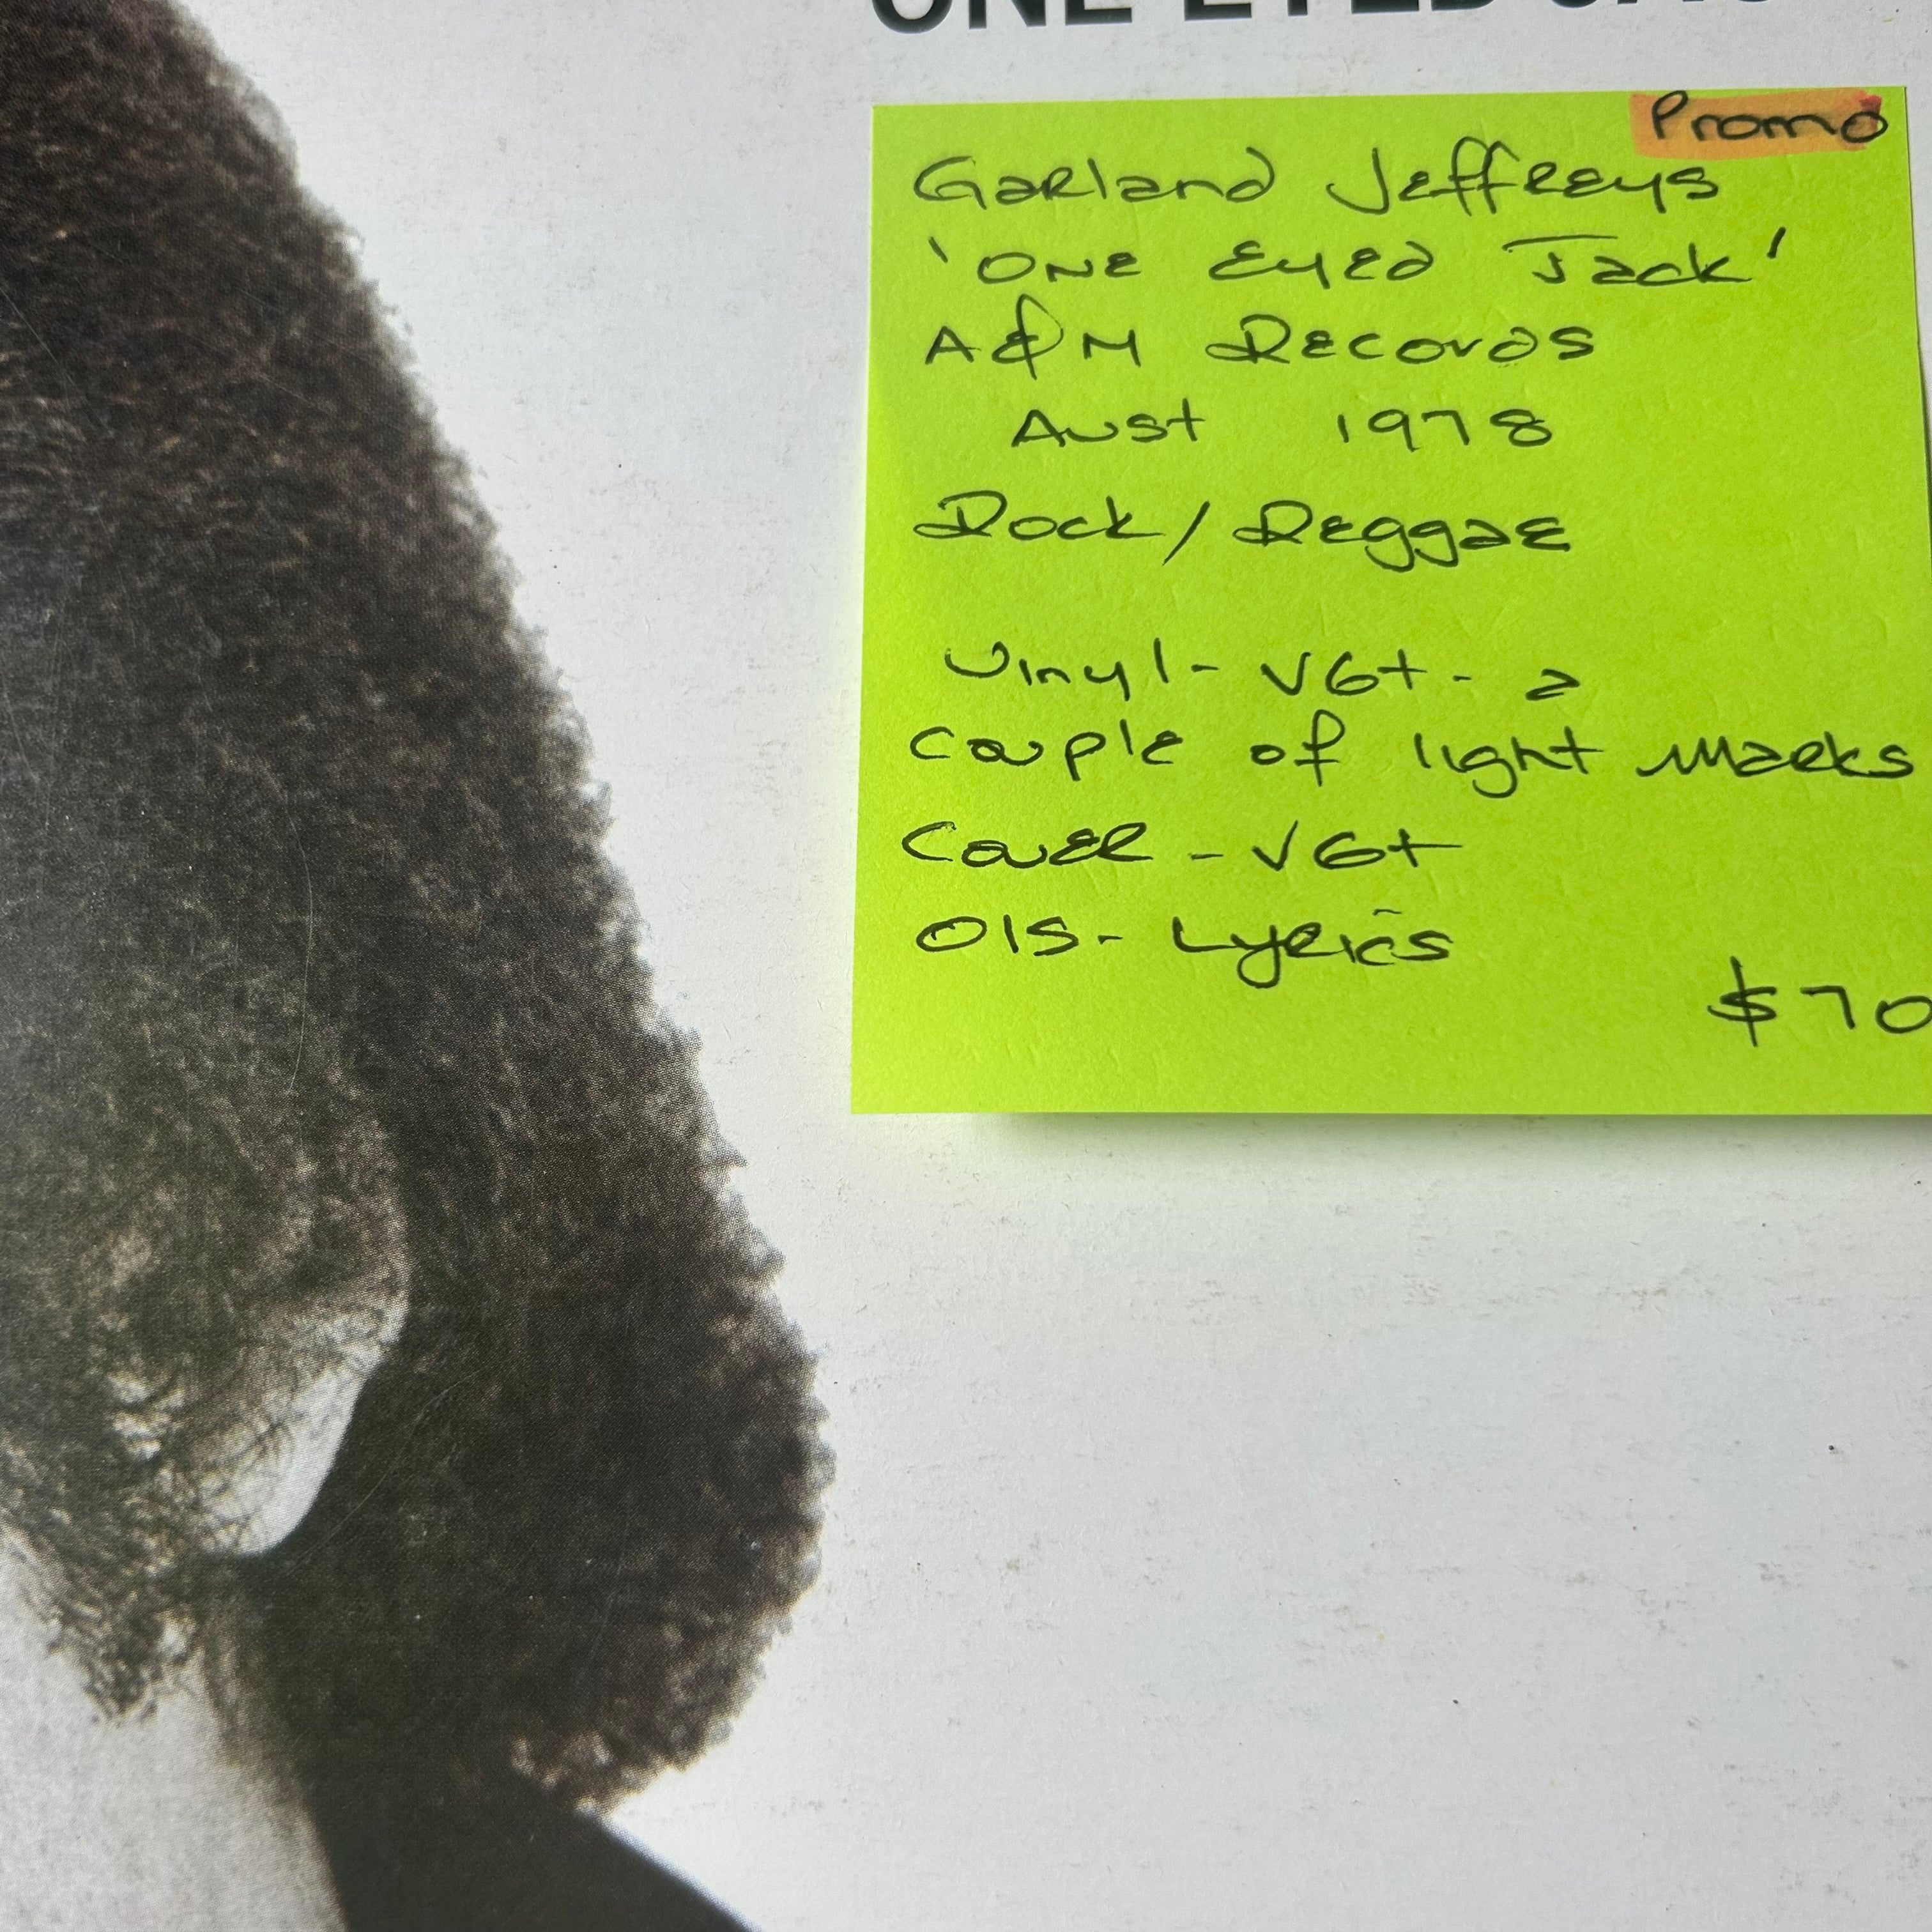 ONE EYED JAC
Promo
Garland Jeffreys
'One Eyed Jack'
A&M Records
Aust 1978
Rock/Reggae
Vinyl - VG+ - a
couple of light marks
Cover - VG+
OIS - Lyrics
$70